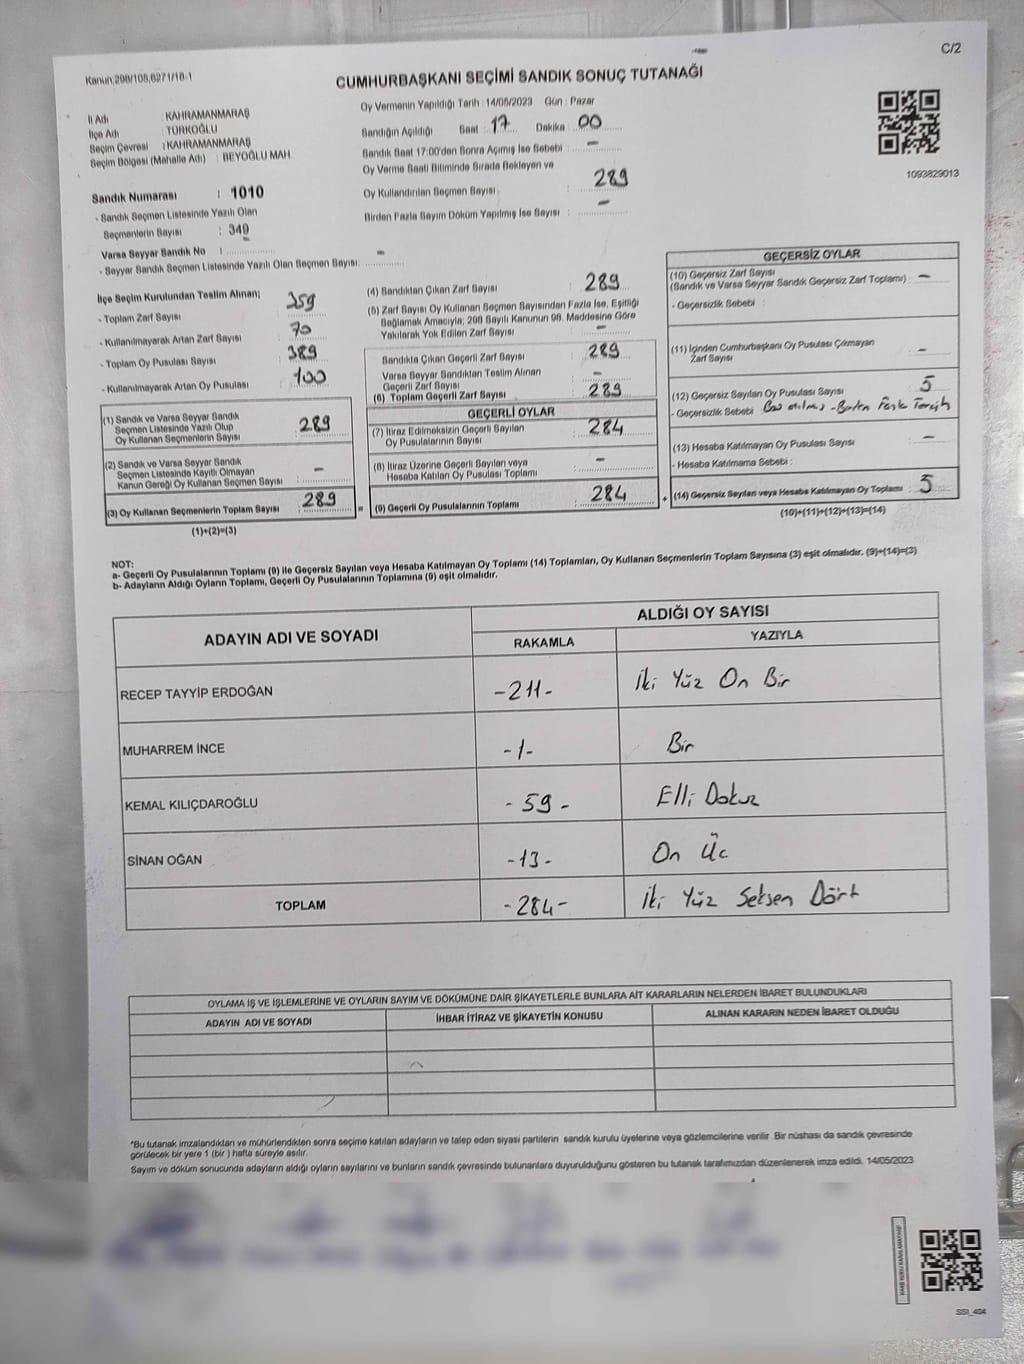 C/2
Kanun;298/105,6271/18-1
CUMHURBAŞKANI SEÇİMİ SANDIK SONUÇ TUTANAĞI
İl Adı : KAHRAMANMARAŞ
İlçe Adı : TÜRKOĞLU
Seçim Çevresi : KAHRAMANMARAŞ
Seçim Bölgesi (Mahalle Adı) : BEYOĞLU MAH.
Oy Vermenin Yapıldığı Tarih : 14/05/2023 Gün : Pazar
Sandığın Açıldığı Saat 17 Dakika 00
Sandık Saat 17:00'den Sonra Açılmış İse Sebebi : -
Oy Verme Saati Bitiminde Sırada Bekleyen ve
Oy Kullandırılan Seçmen Sayısı : 289
Birden Fazla Sayım Döküm Yapılmış İse Sayısı : -
1093829013
Sandık Numarası : 1010
- Sandık Seçmen Listesinde Yazılı Olan
Seçmenlerin Sayısı : 349
Varsa Seyyar Sandık No :
- Seyyar Sandık Seçmen Listesinde Yazılı Olan Seçmen Sayısı: -
İlçe Seçim Kurulundan Teslim Alınan;
- Toplam Zarf Sayısı : 359
- Kullanılmayarak Artan Zarf Sayısı : 70
- Toplam Oy Pusulası Sayısı : 389
- Kullanılmayarak Artan Oy Pusulası : 100
(1) Sandık ve Varsa Seyyar Sandık
Seçmen Listesinde Yazılı Olup
Oy Kullanan Seçmenlerin Sayısı : 289
(2) Sandık ve Varsa Seyyar Sandık
Seçmen Listesinde Kayıtlı Olmayan
Kanun Gereği Oy Kullanan Seçmen Sayısı : -
(3) Oy Kullanan Seçmenlerin Toplam Sayısı : 289
(1)+(2)=(3)
(4) Sandıktan Çıkan Zarf Sayısı : 289
(5) Zarf Sayısı Oy Kullanan Seçmen Sayısından Fazla İse, Eşitliği
Sağlamak Amacıyla, 298 Sayılı Kanunun 98. Maddesine Göre
Yakılarak Yok Edilen Zarf Sayısı : -
Sandıkta Çıkan Geçerli Zarf Sayısı : 289
Varsa Seyyar Sandıktan Teslim Alınan
Geçerli Zarf Sayısı : -
(6) Toplam Geçerli Zarf Sayısı : 289
GEÇERLİ OYLAR
(7) İtiraz Edilmeksizin Geçerli Sayılan
Oy Pusulalarının Sayısı : 284
(8) İtiraz Üzerine Geçerli Sayılan veya
Hesaba Katılan Oy Pusulası Toplamı : -
= (9) Geçerli Oy Pusulalarının Toplamı : 284
GEÇERSİZ OYLAR
(10) Geçersiz Zarf Sayısı
(Sandık ve Varsa Seyyar Sandık Geçersiz Zarf Toplamı) : -
- Geçersizlik Sebebi :
(11) İçinden Cumhurbaşkanı Oy Pusulası Çıkmayan
Zarf Sayısı : -
(12) Geçersiz Sayılan Oy Pusulası Sayısı : 5
- Geçersizlik Sebebi : Boş atılmış - Birden Fazla Tercih
(13) Hesaba Katılmayan Oy Pusulası Sayısı : -
- Hesaba Katılmama Sebebi :
+ (14) Geçersiz Sayılan veya Hesaba Katılmayan Oy Toplamı : 5
(10)+(11)+(12)+(13)=(14)
NOT:
a- Geçerli Oy Pusulalarının Toplamı (9) ile Geçersiz Sayılan veya Hesaba Katılmayan Oy Toplamı (14) Toplamları, Oy Kullanan Seçmenlerin Toplam Sayısına (3) eşit olmalıdır. (9)+(14)=(3)
b- Adayların Aldığı Oyların Toplamı, Geçerli Oy Pusulalarının Toplamına (9) eşit olmalıdır.
ADAYIN ADI VE SOYADI
ALDIĞI OY SAYISI
RAKAMLA YAZIYLA
RECEP TAYYİP ERDOĞAN -211- İki Yüz On Bir
MUHARREM İNCE -1- Bir
KEMAL KILIÇDAROĞLU -59- Elli Dokuz
SİNAN OĞAN -13- On Üç
TOPLAM -284- İki Yüz Seksen Dört
OYLAMA İŞ VE İŞLEMLERİNE VE OYLARIN SAYIM VE DÖKÜMÜNE DAİR ŞİKAYETLERLE BUNLARA AİT KARARLARIN NELERDEN İBARET BULUNDUKLARI
ADAYIN ADI VE SOYADI İHBAR İTİRAZ VE ŞİKAYETİN KONUSU ALINAN KARARIN NEDEN İBARET OLDUĞU
*Bu tutanak imzalandıktan ve mühürlendikten sonra seçime katılan adayların ve talep eden siyasi partilerin sandık kurulu üyelerine veya gözlemcilerine verilir. Bir nüshası da sandık çevresinde
görülecek bir yere 1 (bir) hafta süreyle asılır.
Sayım ve döküm sonucunda adayların aldığı oyların sayılarını ve bunların sandık çevresinde bulunanlara duyurulduğunu gösteren bu tutanak tarafımızdan düzenlenerek imza edildi. 14/05/2023
SSI_404